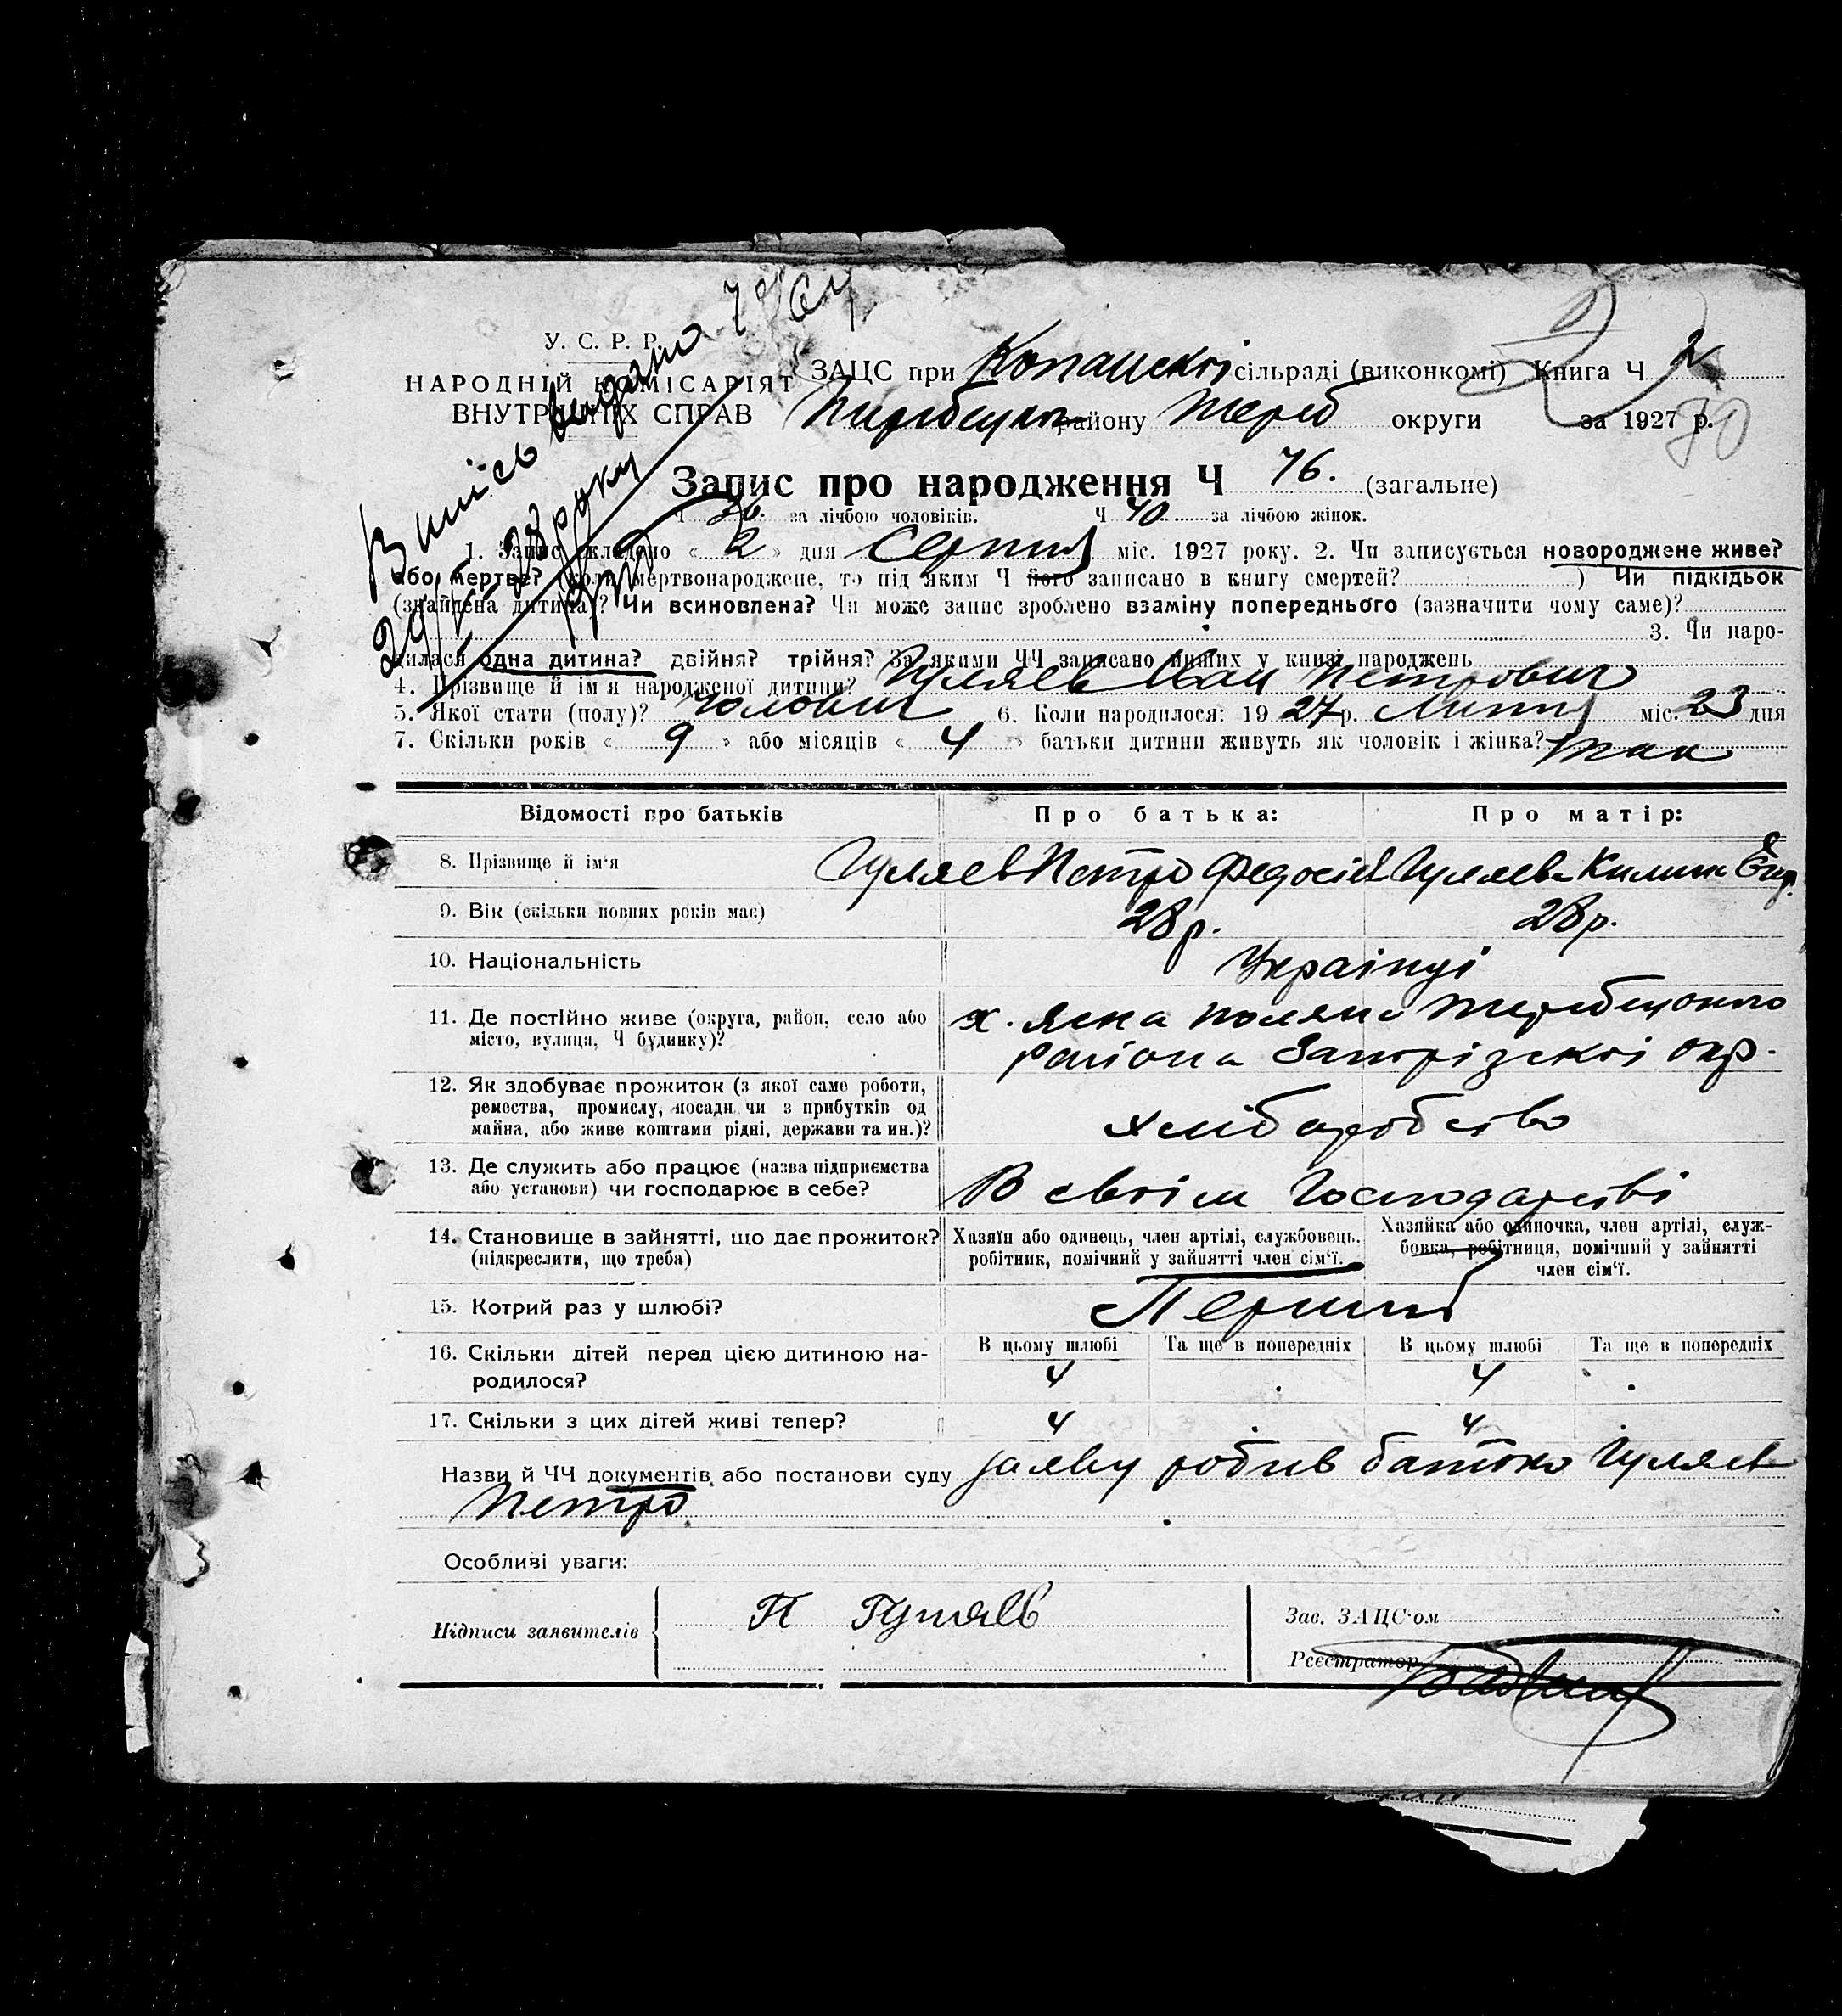 Випісь видано
29/V-28 року
У. С. Р. Р.
НАРОДНІЙ КОМІСАРІЯТ
ВНУТРІШНІХ СПРАВ
ЗАЦС при Копанскої сільраді (виконкомі) Книга Ч 2
району округи за 1927 р.
70
Запис про народження Ч 76. (загальне)
Ч 36. за лічбою чоловіків. Ч 40 за лічбою жінок.
1. Запис складено « 2 » дня Серпня міс. 1927 року. 2. Чи записується новороджене живе?
або мертве? (коли мертвонароджене, то під яким Ч його записано в книгу смертей? ) Чи підкідьок
(знайдена дитина)? Чи всиновлена? Чи може запис зроблено взаміну попереднього (зазначити чому саме)?
3. Чи наро-
дилася одна дитина? двійня? трійня? За якими ЧЧ записано інших у книзі народжень
4. Прізвище й ім'я народженої дитини? Гуляєв Іван Петрович
5. Якої стати (полу)? Чолович 6. Коли народилося: 1927 р. Липня міс. 23 дня
7. Скільки років « 9 » або місяців « 4 » батьки дитини живуть як чоловік і жінка? так
Відомості про батьків Про батька: Про матір:
8. Прізвище й ім'я Гуляєв Петро Федосієв Гуляєва Килина
9. Вік (скільки повних років має) 28 р. 28 р.
10. Національність Українці
11. Де постійно живе (округа, район, село або х. Ясна Поляна
місто, вулиця, Ч будинку)? района Запорізскої окр.
12. Як здобуває прожиток (з якої саме роботи,
ремества, промислу, посади чи з прибутків од
майна, або живе коштами рідні, держави та ин.)? хліборобство
13. Де служить або працює (назва підприємства
або установи) чи господарює в себе? В своїм господарстві
14. Становище в зайнятті, що дає прожиток? Хазяїн або одинець, член артілі, службовець, Хазяйка або одиночка, член артілі, служ-
(підкреслити, що треба) робітник, помічний у зайнятті член сім'ї. бовка, робітниця, помічний у зайнятті
член сім'ї.
15. Котрий раз у шлюбі? Перший
16. Скільки дітей перед цією дитиною на- В цьому шлюбі Та ще в попередніх В цьому шлюбі Та ще в попередніх
родилося? 4 4
17. Скільки з цих дітей живі тепер? 4 4
Назви й ЧЧ документів або постанови суду заяву робив батько Гуляєв
Петро.
Особливі уваги:
Підписи заявителів П Гуляєв Зав. ЗАЦС'ом
Реєстратор